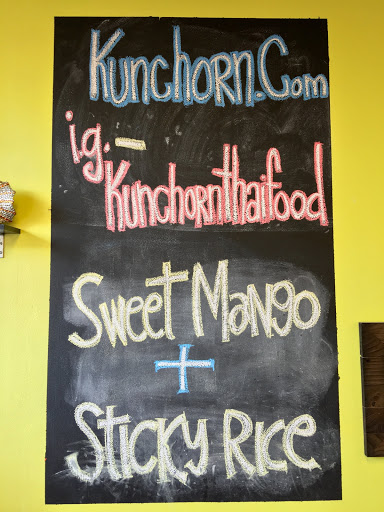 Kunchorn.Com
ig.-
Kunchornthaifood
Sweet Mango
+
Sticky Rice